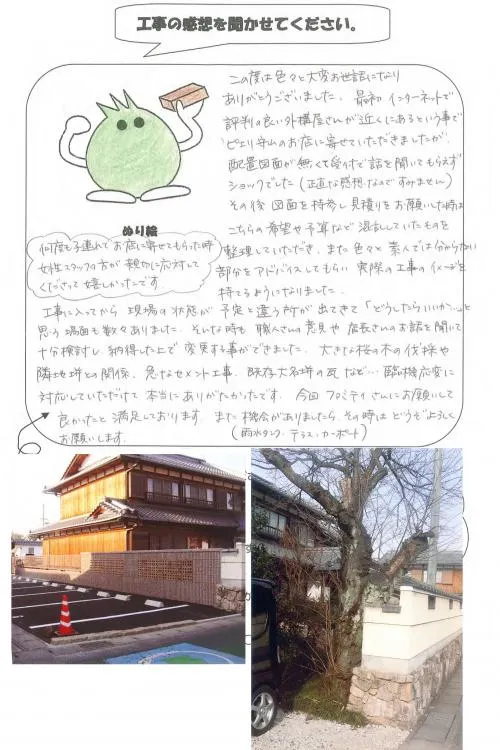 工事の感想を聞かせてください。
この度は色々と大変お世話になり
ありがとうございました。最初 インターネットで
評判の良い外構屋さんが近くにあるという事で
ピエリ守山のお店に寄せていただきましたが、
配置図面が無くて受付で話を聞いてもらえず
ショックでした(正直な感想なのですみません)
その後 図面を持参し見積りをお願いした時は
こちらの希望や予算など 混乱していたものを
整理していただき、また色々と素人では分からない
部分をアドバイスしてもらい 実際の工事のイメージを
持てるようになりました。
ぬり絵
何度も子連れでお店に寄せてもらった時
女性スタッフの方が親切に応対して
くださって嬉しかったです
工事に入ってから 現場の状態が 予定と違う所が出てきて「どうしたらいいか…」と
思う場面も数々ありました。そんな時も 職人さんの意見や 店長さんのお話を聞いて
十分検討し、納得した上で 変更する事ができました。大きな桜の木の伐採や
隣地塀との関係、急なセメント工事、既存大名塀の瓦など… 臨機応変に
対応していただけて 本当にありがたかったです。今回 ファミティさんにお願いして
良かったと 満足しております。また 機会がありましたら その時は どうぞよろしく
お願いします。
(雨水タンク・テラス・カーポート)